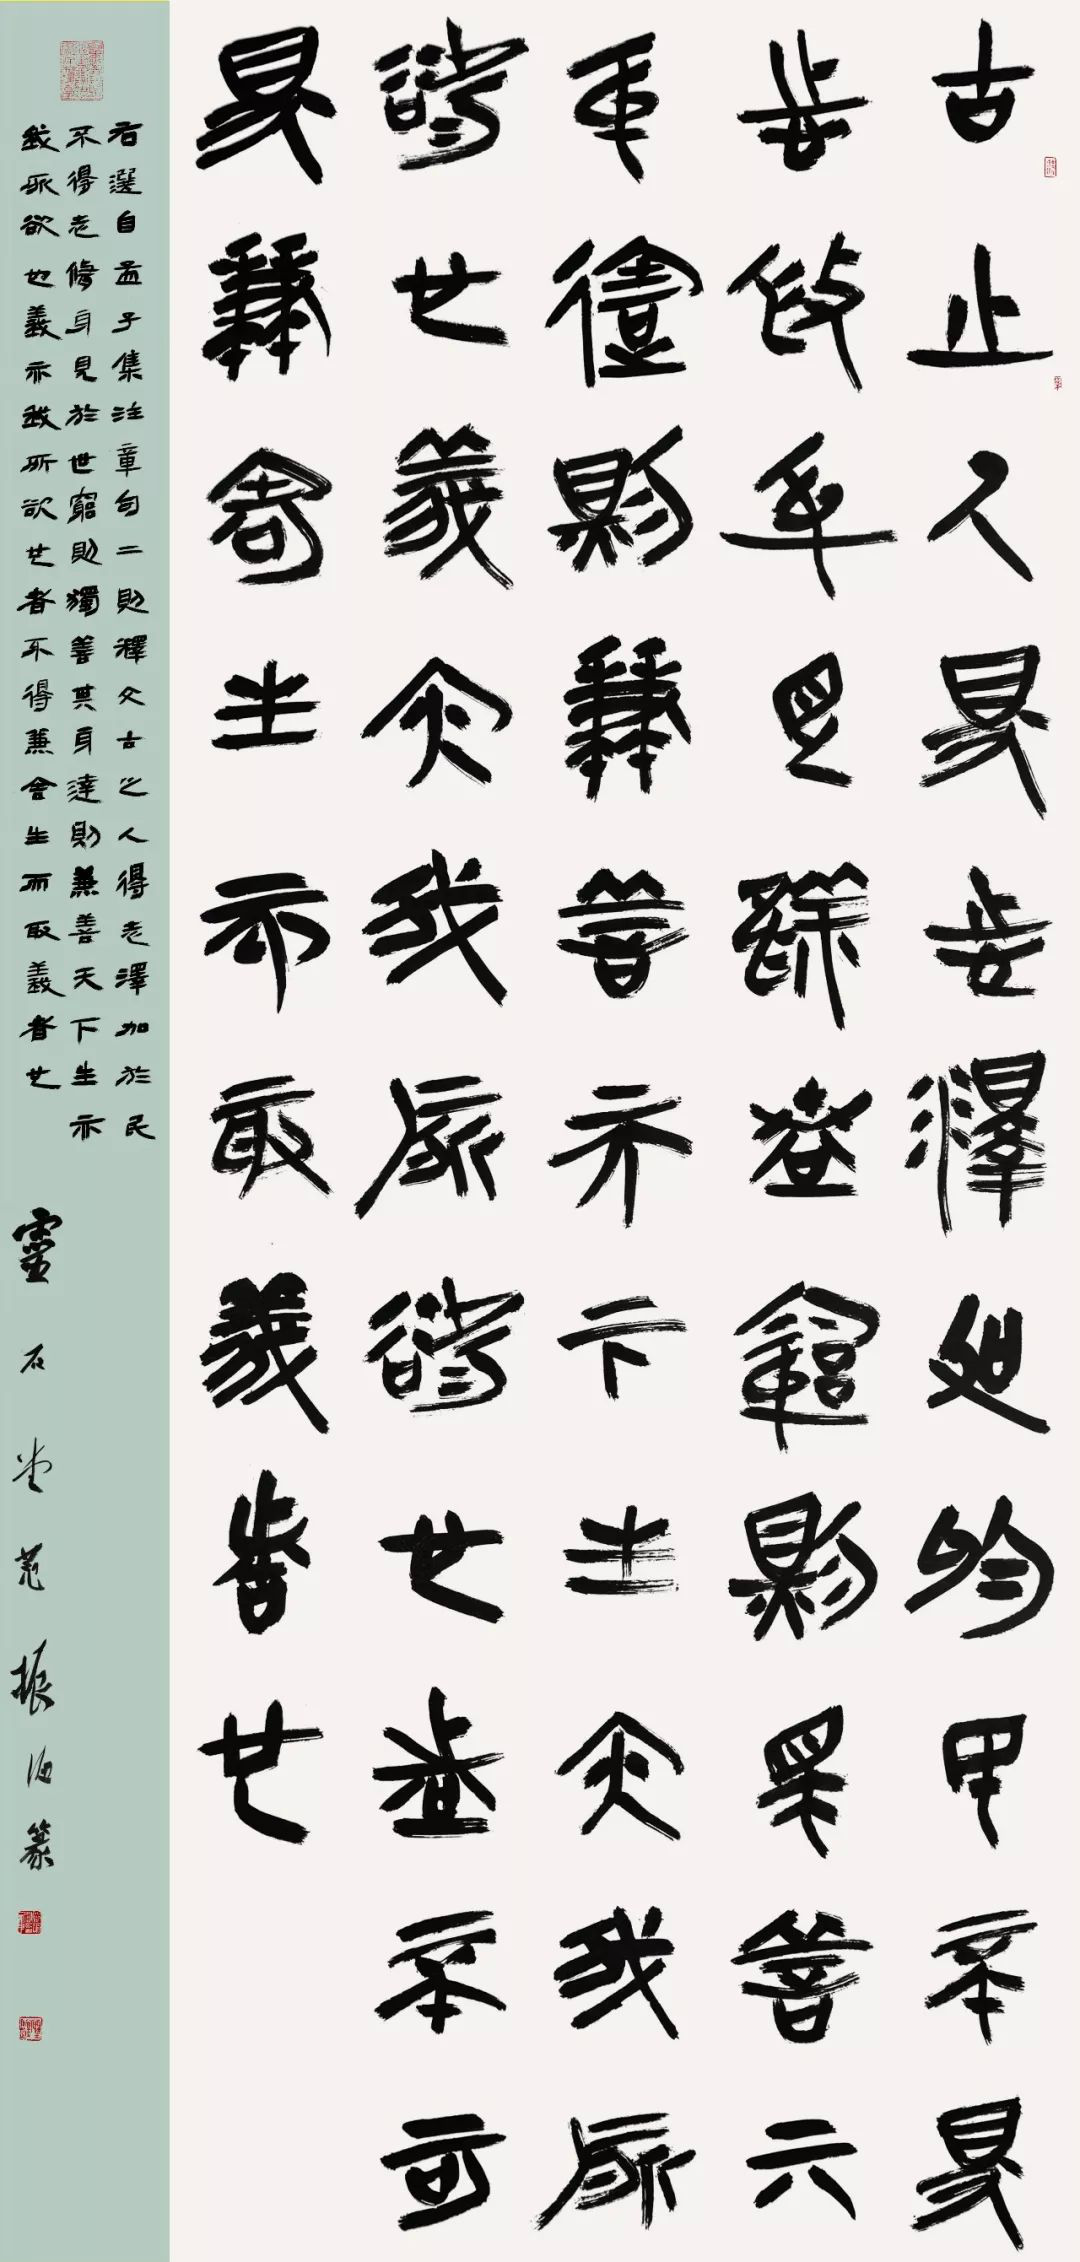 古之人得志澤加於民不得
志修身見於世窮則獨善其
身達則兼善天下生亦我所
欲也義亦我所欲也者不可
得兼舍生而取義者也
右選自孟子集注章句二則釋文古之人得志澤加於民
不得志修身見於世窮則獨善其身達則兼善天下生亦
我所欲也義亦我所欲也者不得兼舍生而取義者也
靈石堂范振海篆